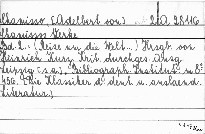 Chamisso, (Adelbert von) 20. 28116
Chamissos Werke
Bd 2. (Reise um die Welt...) Hrsgb. von
Heinrich Kurz. Krit. durchges. Ausg.
Leipzig (s.a.), Bibliograph. Institut. 8°
456. (Die Klassiker d. deut. u. ausländ.
Literatur.)